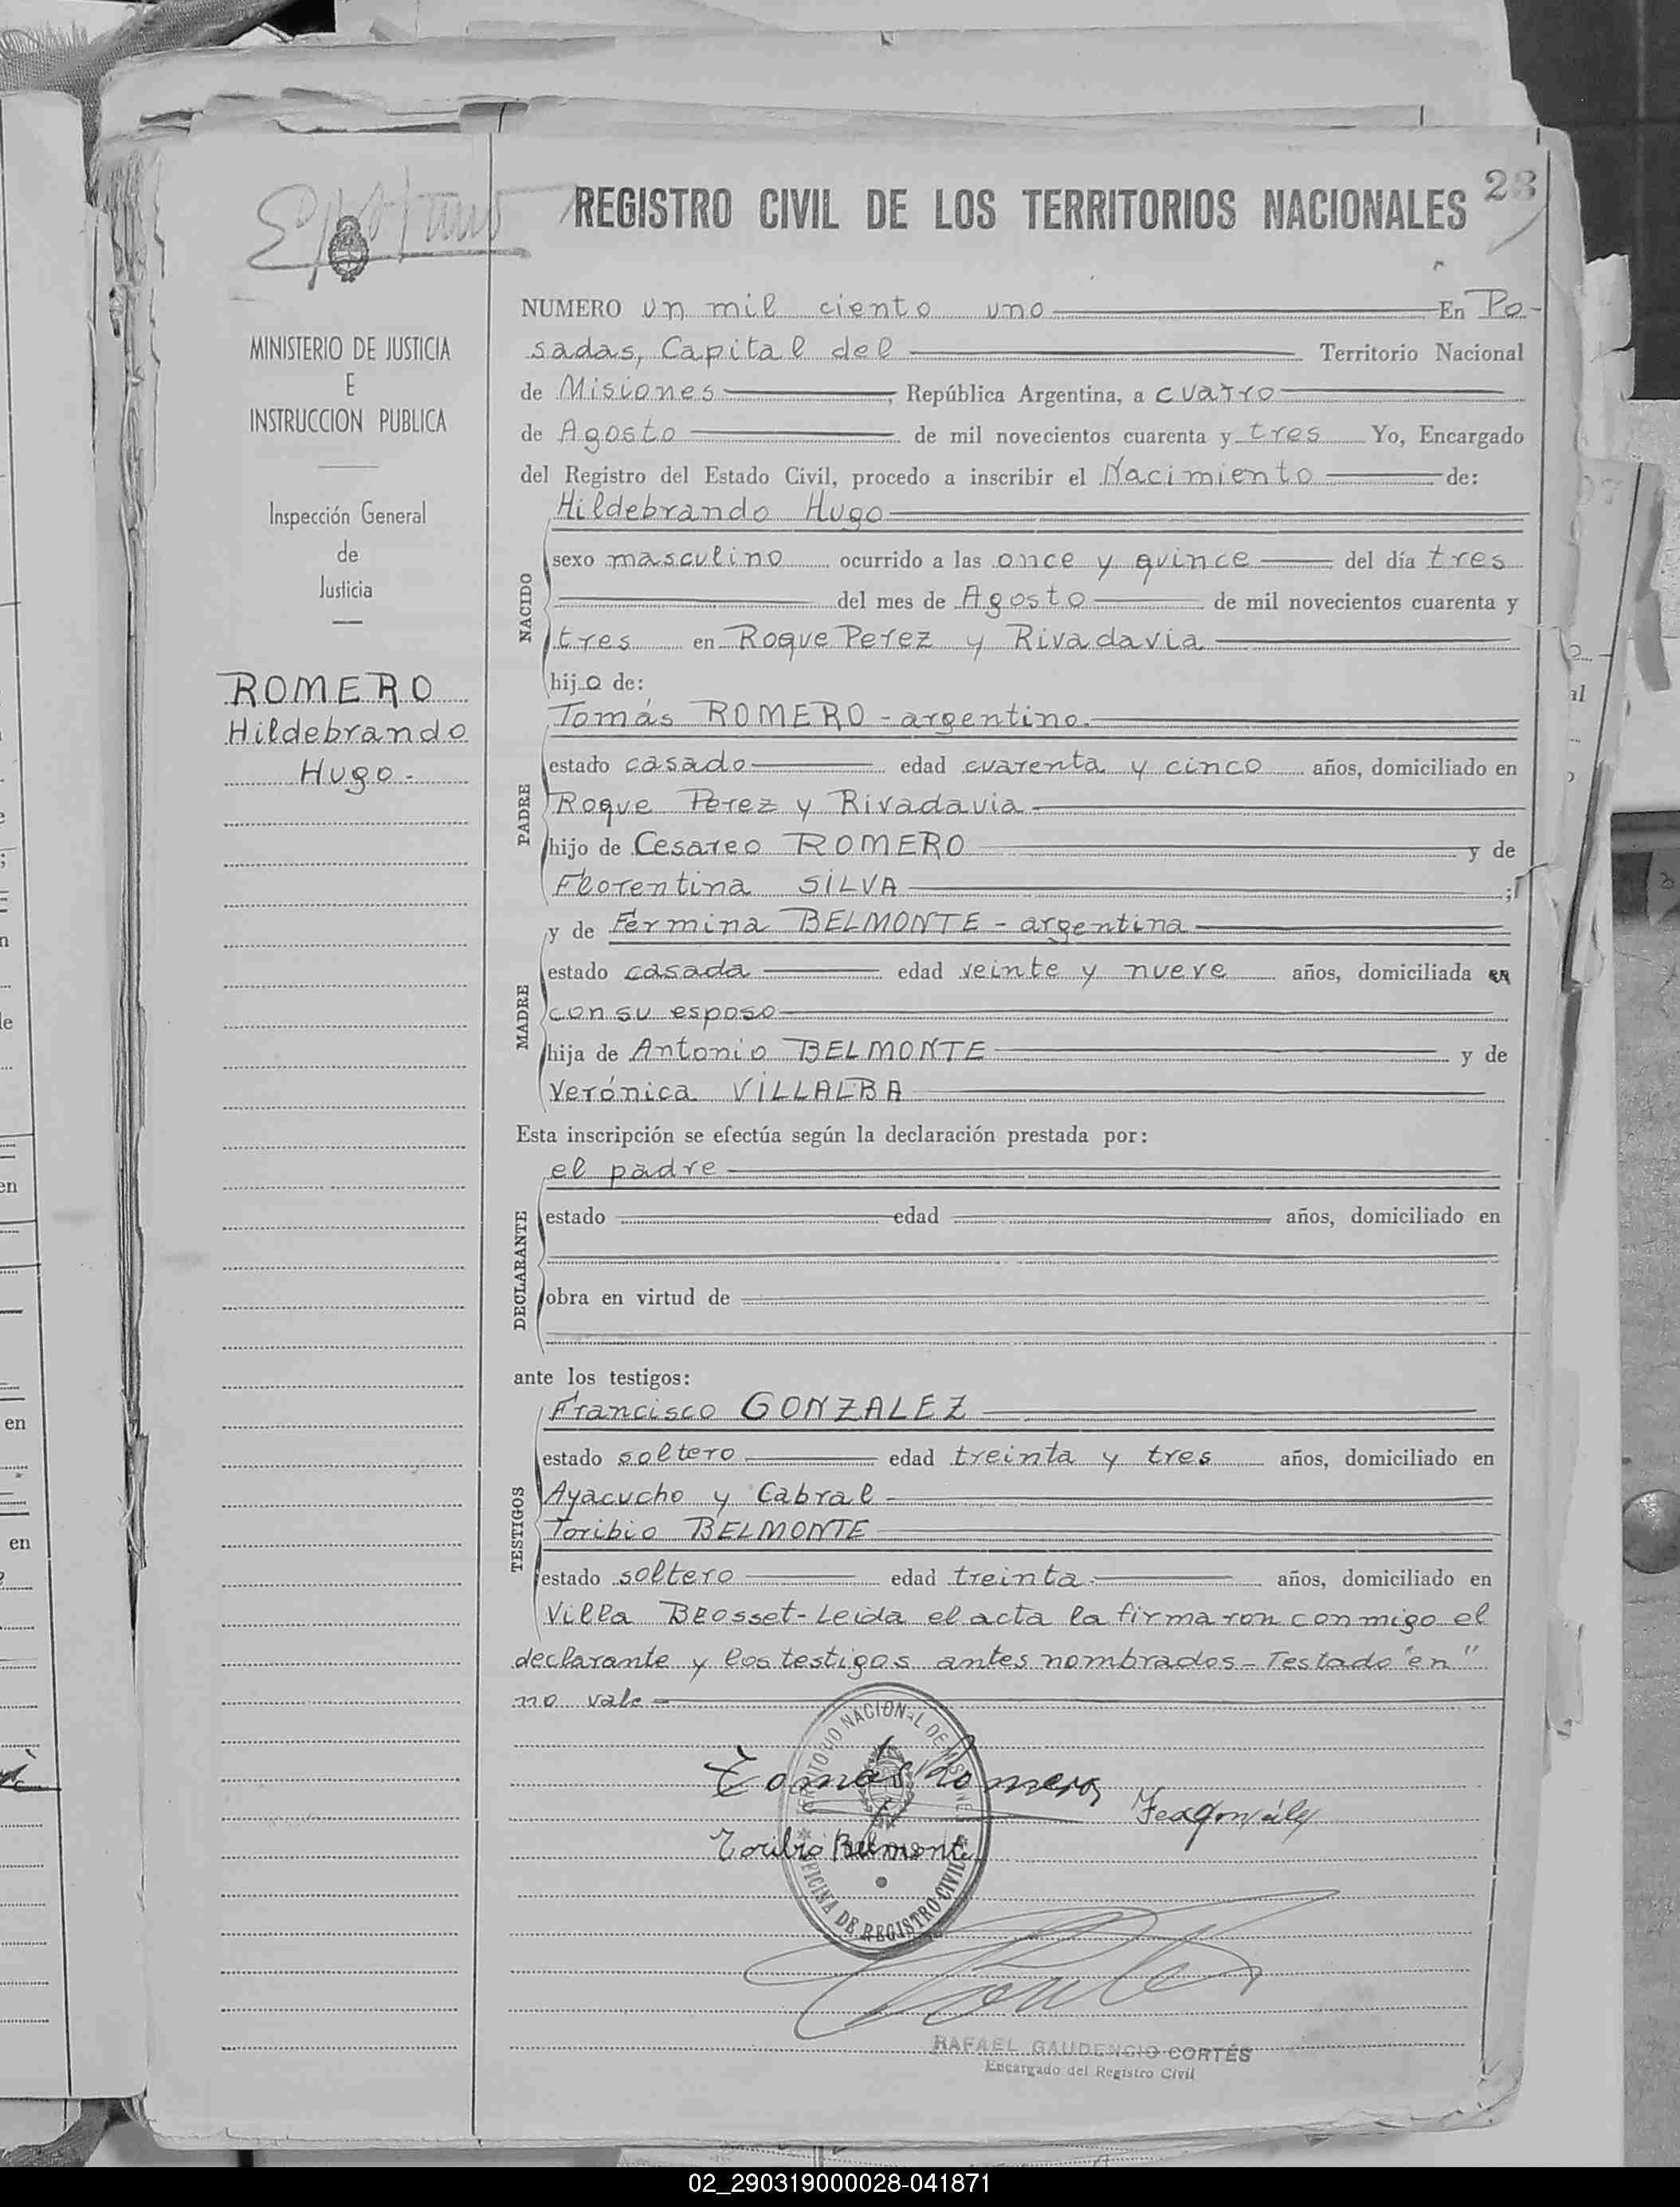 28
REGISTRO CIVIL DE LOS TERRITORIOS NACIONALES
MINISTERIO DE JUSTICIA
E
INSTRUCCION PUBLICA
Inspección General
de
Justicia
ROMERO
Hildebrando
Hugo.-
NUMERO un mil ciento uno En Po-
sadas, Capital del Territorio Nacional
de Misiones, República Argentina, a cuatro
de Agosto de mil novecientos cuarenta y tres Yo, Encargado
del Registro del Estado Civil, procedo a inscribir el Nacimiento de:
NACIDO
Hildebrando Hugo
sexo masculino ocurrido a las once y quince del día tres
del mes de Agosto de mil novecientos cuarenta y
tres en Roque Perez y Rivadavia
hijo de:
PADRE
Tomás ROMERO - argentino.
estado casado edad cuarenta y cinco años, domiciliado en
Roque Perez y Rivadavia
hijo de Cesareo ROMERO y de
Florentina SILVA ;
MADRE
y de Fermina BELMONTE - argentina
estado casada edad veinte y nueve años, domiciliada en
con su esposo
hija de Antonio BELMONTE y de
Verónica VILLALBA
Esta inscripción se efectúa según la declaración prestada por:
DECLARANTE
el padre
estado edad años, domiciliado en
obra en virtud de
ante los testigos:
TESTIGOS
Francisco GONZALEZ
estado soltero edad treinta y tres años, domiciliado en
Ayacucho y Cabral
Toribio BELMONTE
estado soltero edad treinta años, domiciliado en
Villa Blosset - Leida el acta la firmaron conmigo el
declarante y los testigos antes nombrados - Testado "en"
no vale -
TERRITORIO NACIONAL DE MISIONES
OFICINA DE REGISTRO CIVIL
Tomás Romero
Fco González
Toribio Belmonte
RAFAEL GAUDENCIO CORTÉS
Encargado del Registro Civil
02_290319000028-041871